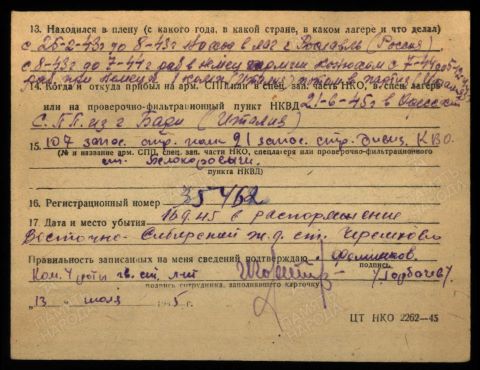 13. Находился в плену (с какого года, в какой стране, в каком лагере и что делал)
с 26-2-43г до 8-43г наход в лаг г Рославль (Россия)
с 8-43г до 7-44г раб в немец с 7-44г
14. Когда и откуда прибыл на арм. СПП или в спец. зап. часть НКО, в спец. лагерь
или на проверочно-фильтрационный пункт НКВД 21-6-45г в Одесский
С.П.П. из г Бари (Италия)
15. 107 запас. стр. полк 91 запас. стр. дивиз. КВО.
(№ и название арм. СПП, спец. зап. части НКО, спецлагеря или проверочно-фильтрационного
ст. Белокоровичи
пункта НКВД)
16. Регистрационный номер 35762
17 Дата и место убытия 16 9.45 в распоряжение
Восточно-Сибирской ж.д. ст. Черемхово
Правильность записанных на меня сведений подтверждаю
подпись
Ком. 4 роты гв. ст. л-нт /Горбачев/
подпись сотрудника, заполняющего карточку
"13" июля 1945 г.
ЦТ НКО 2262—45
ПАМЯТЬ НАРОДА